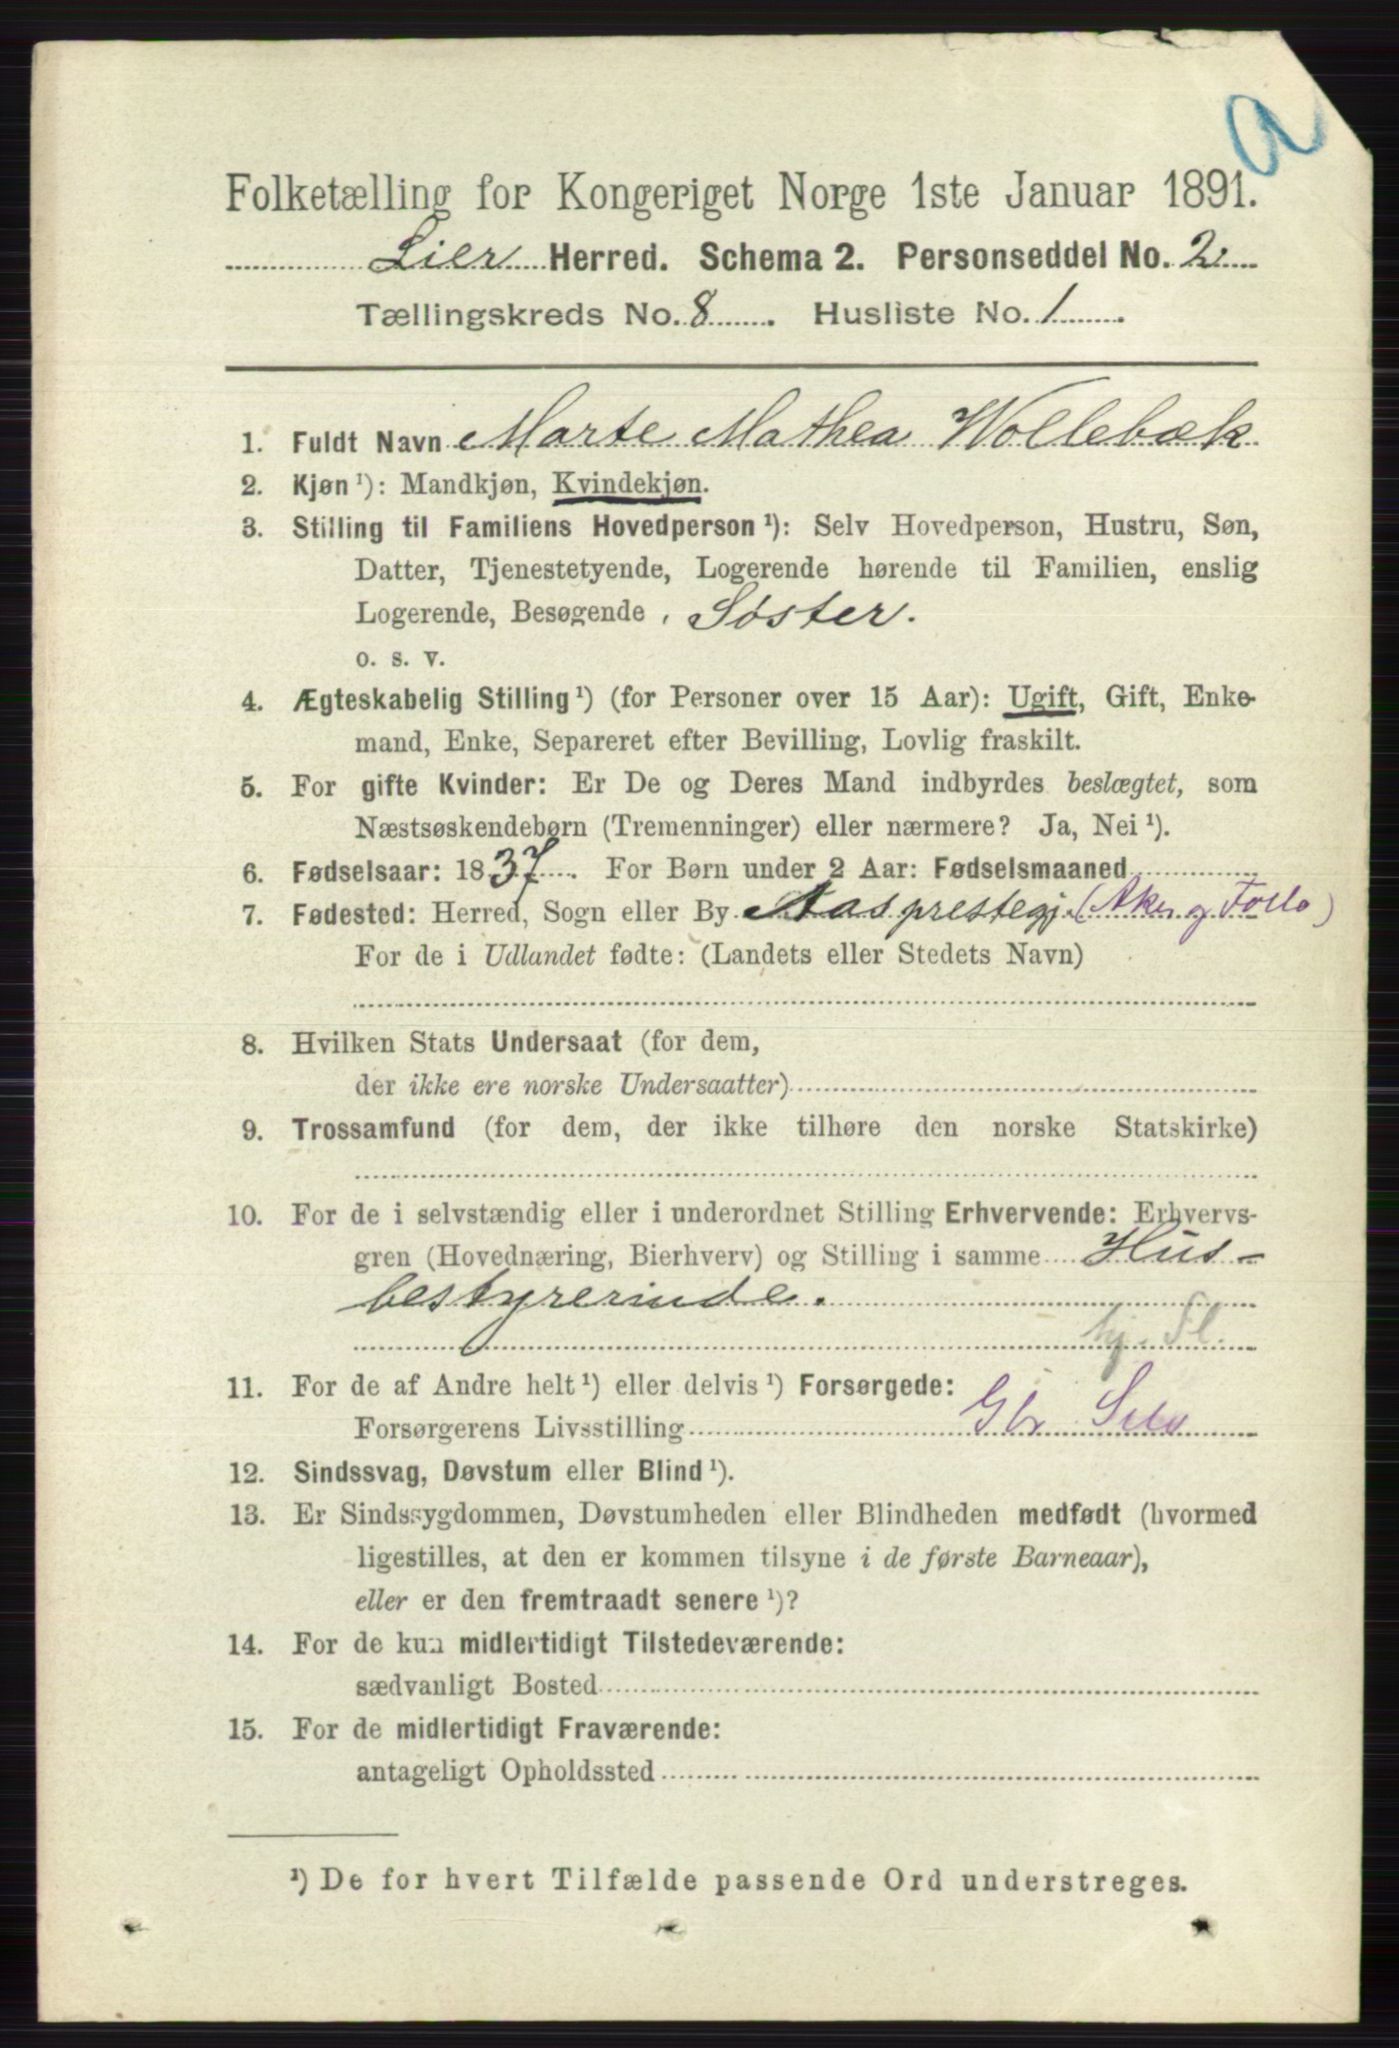 a
Folketælling for Kongeriget Norge 1ste Januar 1891.
Lier Herred. Schema 2. Personseddel No. 2
Tællingskreds No. 8 . Husliste No. 1 .
1. Fuldt Navn Marte Mathea Wollebæk
2. Kjøn ¹): Mandkjøn, Kvindekjøn.
3. Stilling til Familiens Hovedperson ¹): Selv Hovedperson, Hustru, Søn,
Datter, Tjenestetyende, Logerende hørende til Familien, enslig
Logerende, Besøgende . Søster.
o. s. v.
4. Ægteskabelig Stilling ¹) (for Personer over 15 Aar): Ugift, Gift, Enke-
mand, Enke, Separeret efter Bevilling, Lovlig fraskilt.
5. For gifte Kvinder: Er De og Deres Mand indbyrdes beslægtet, som
Næstsøskendebørn (Tremenninger) eller nærmere? Ja, Nei ¹).
6. Fødselsaar: 1837 . For Børn under 2 Aar: Fødselsmaaned
7. Fødested: Herred, Sogn eller By Aas prestegj. (Aker og Follo)
For de i Udlandet fødte: (Landets eller Stedets Navn)
8. Hvilken Stats Undersaat (for dem,
der ikke ere norske Undersaatter)
9. Trossamfund (for dem, der ikke tilhøre den norske Statskirke)
10. For de i selvstændig eller i underordnet Stilling Erhvervende: Erhvervs-
gren (Hovednæring, Bierhverv) og Stilling i samme Hus-
bestyrerinde.
hj. Sl.
11. For de af Andre helt ¹) eller delvis ¹) Forsørgede:
Forsørgerens Livsstilling Gbr Selv
12. Sindssvag, Døvstum eller Blind ¹).
13. Er Sindssygdommen, Døvstumheden eller Blindheden medfødt (hvormed
ligestilles, at den er kommen tilsyne i de første Barneaar),
eller er den fremtraadt senere ¹)?
14. For de kun midlertidigt Tilstedeværende:
sædvanligt Bosted
15. For de midlertidigt Fraværende:
antageligt Opholdssted
¹) De for hvert Tilfælde passende Ord understreges.